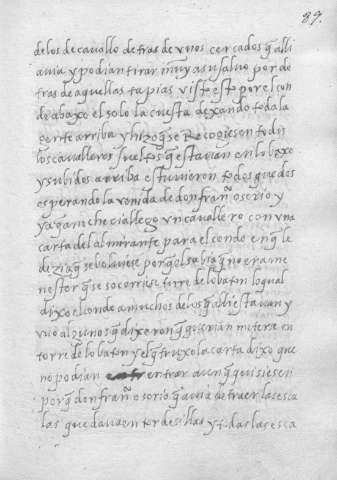 89.
delos de cavallo detras de unos cercados q̃ alli
avia y podian tirar muy a su salvo por de
tras de aquellas tapias visto esto por el con
de abaxo el solo la cuesta dexando toda la
gente arriba y hizo q̃ se Recogiesen todos
los cavalleros sueltos q̃ estavan en lo baxo
y subidos arriba estuvieron todos quedos
esperando la venida de don fran^co osorio y
ya q̃ anichecia llego un cavallero con una
carta del almirante para el conde en q̃ le
dezia q̃ se bolviese porq̃ el sabia q̃ no era me
nester q̃ se socorriese torre de lobaton lo qual
dixo el conde a muchos de los q̃ alli estavan y
vuo algunos q̃ dixeron q̃ querian meterse en
torre de lobaton y el q̃ truxo la carta dixo que
no podian entrar aunq̃ quisiesen
porq̃ don fran^co osorio q̃ avia de traer las esca
las quedava en tordesillas y todas las esca